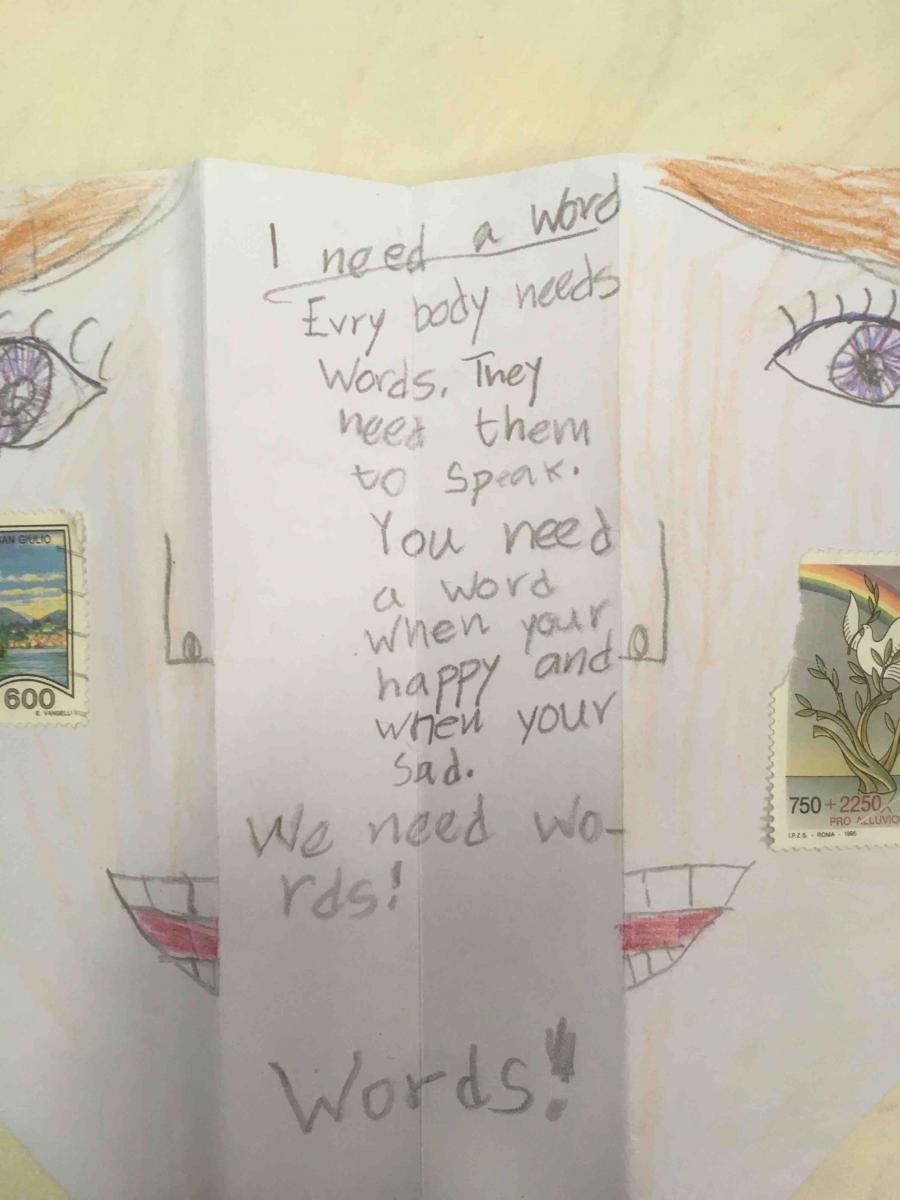 I need a word
Evry body needs
Words. They
need them
to speak.
You need
a word
when your
happy and
when your
sad.
We need wo-
rds!
Words!
SAN GIULIO
600
E. VANGELLI
750+2250
PRO ALLUVIO
I.P.Z.S. - ROMA - 1995